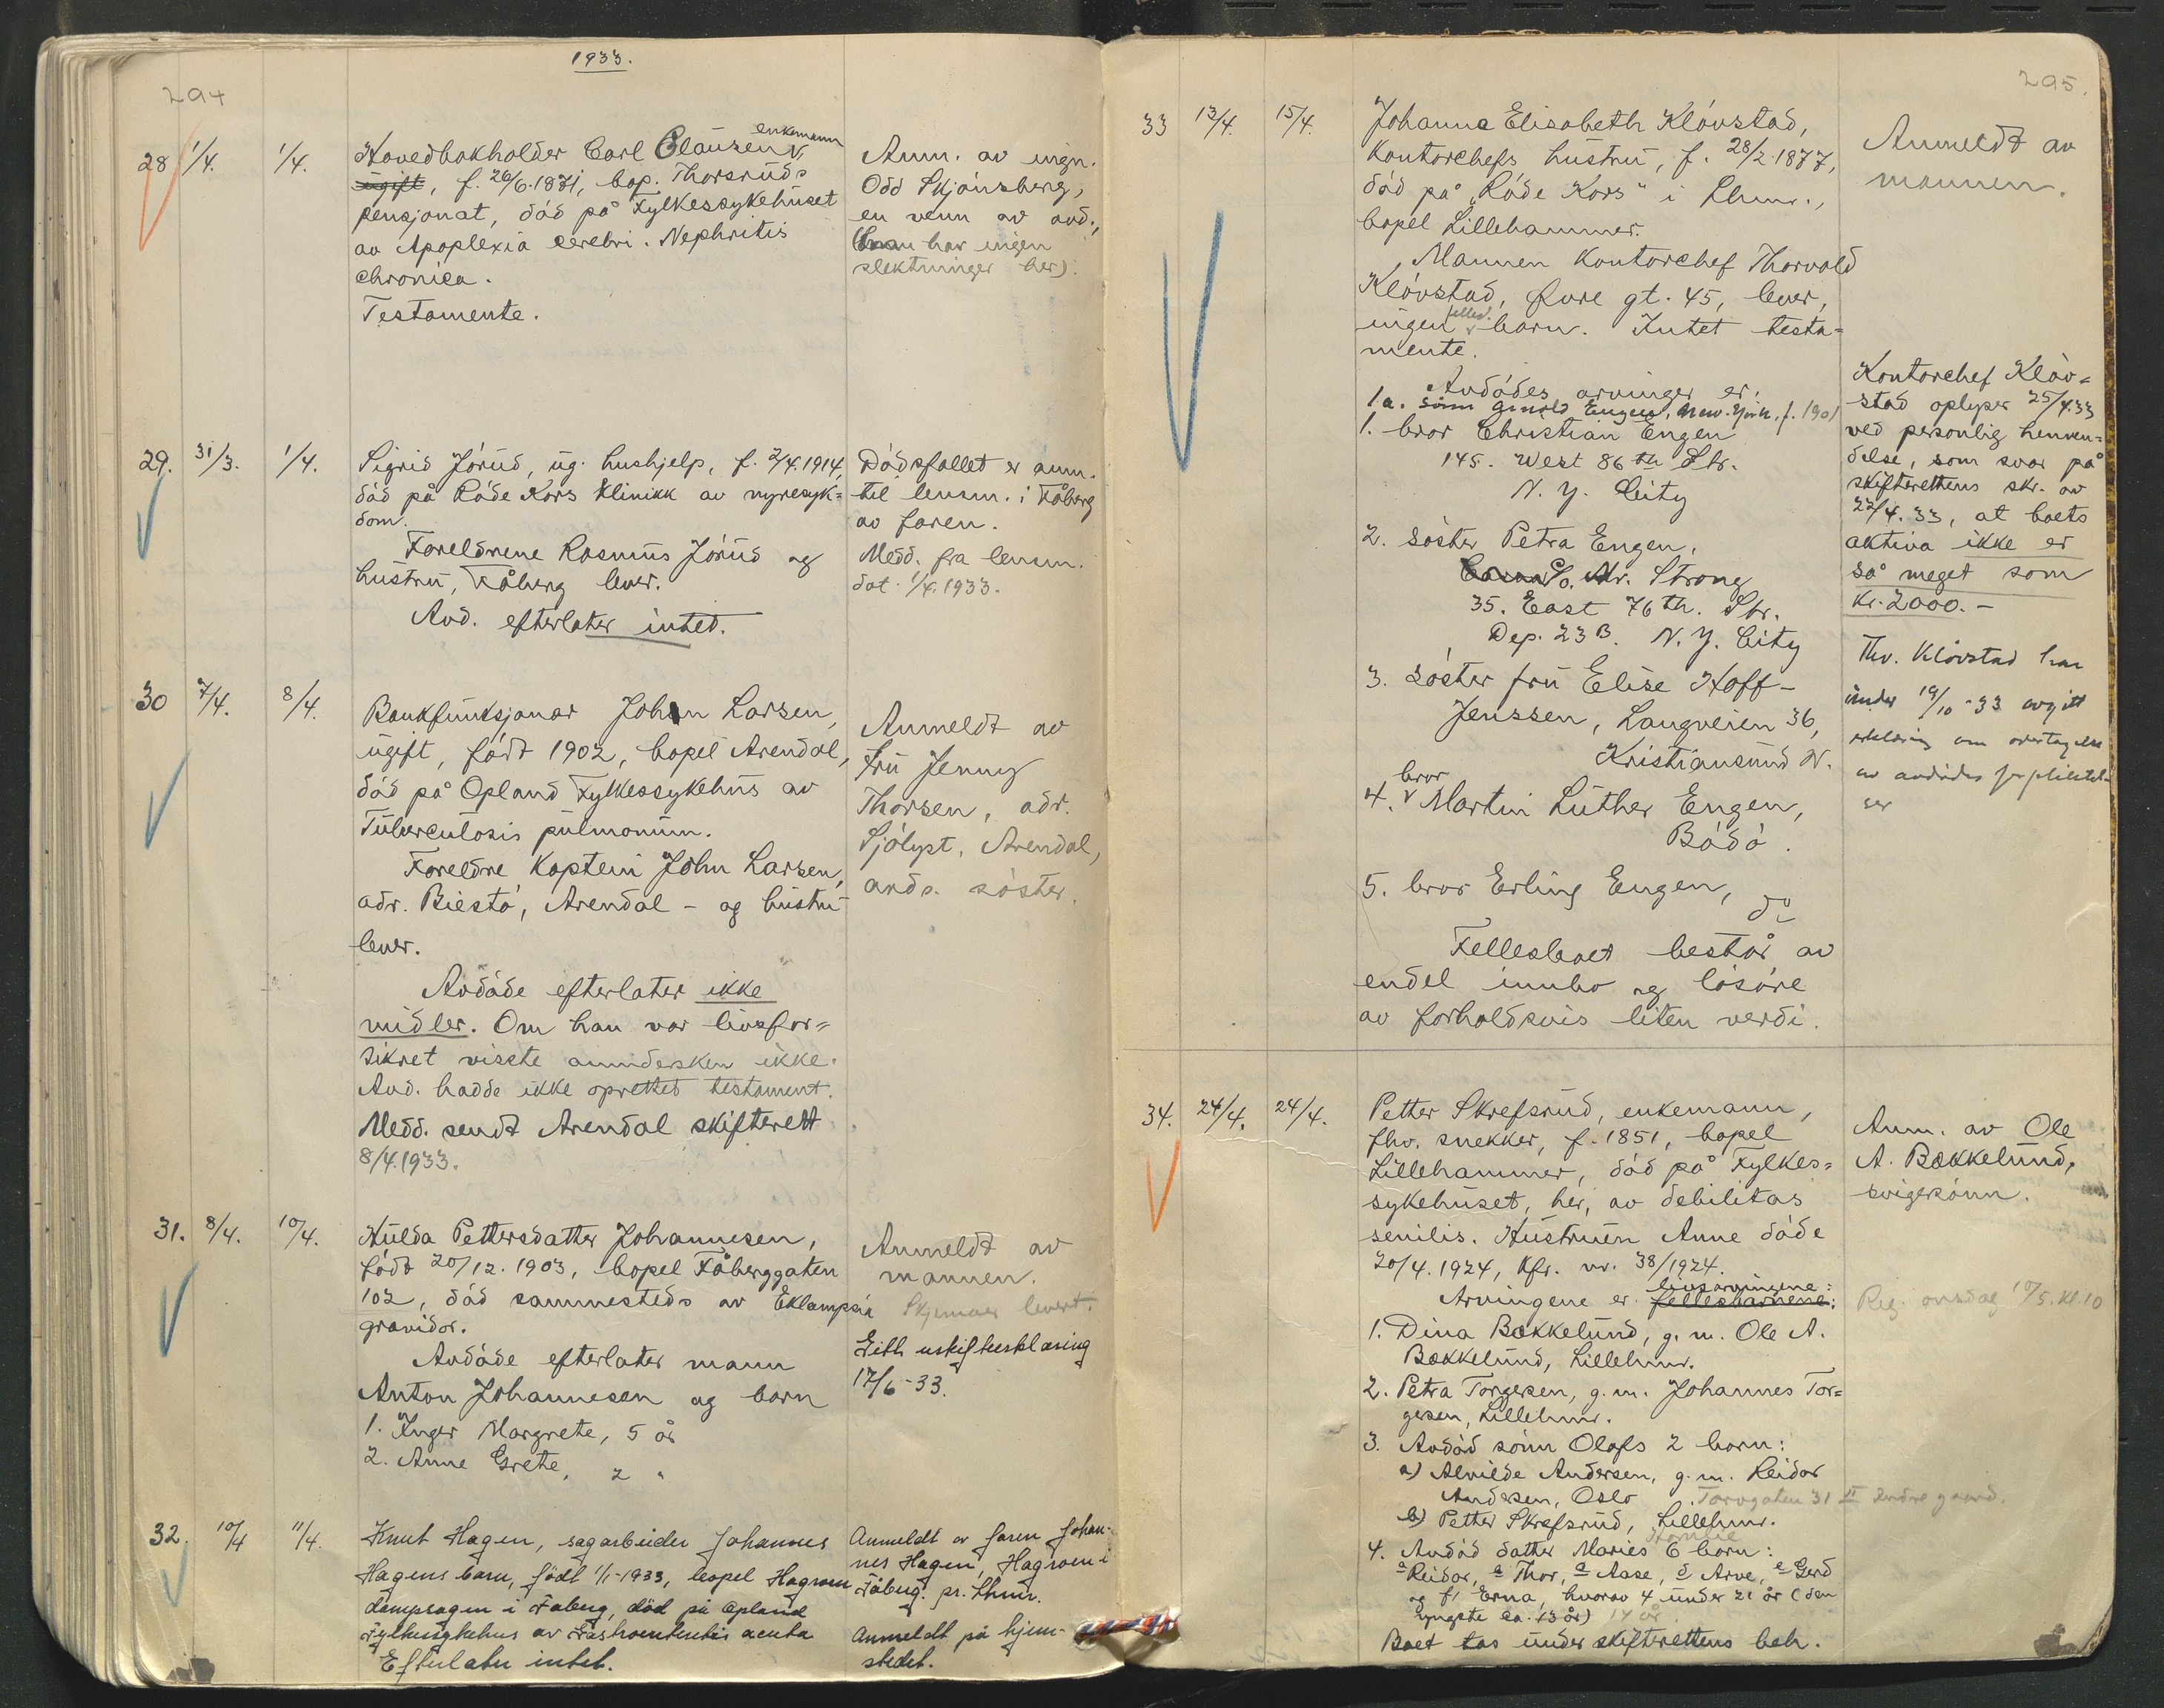 1933.
294
28 1/4. 1/4.
Hovedbokholder Carl Clausen, enkemann
ugift, f. 26/6.1871, bop. Thorsruds
pensjonat, död på Fylkessykehuset
av Apoplexia cerebri. Nephritis
chronica.
Testamente.
Anm. av ingn.
Odd Skjönsberg,
en venn av avd.,
har ingen
slektninger her).
29. 31/3. 1/4.
Sigrid Jörud, ug. hushjelp, f. 2/4.1914,
död på Röde Kors Klinikk av nyresyk=
dom.
Foreldrene Rasmus Jörud og
hustru, Fåberg lever.
Avd. efterlater intet.
Dödsfallet er anm.
til lensm. i Fåberg
av faren.
Medd. fra lensm.
dat. 1/4.1933.
30 7/4. 8/4.
Bankfunksjonær John Larsen,
ugift, födt 1902, bopel Arendal,
död på Opland Fylkessykehus av
Tuberculosis pulmonum.
Foreldre Kaptein John Larsen,
adr. Biestö, Arendal - og hustru
lever.
Avdöde efterlater ikke
midler. Om han var livsfor=
sikret visste anmdersken ikke.
Avd. hadde ikke oprettet testament.
Medd. sendt Arendal skifterett
8/4.1933.
Anmeldt av
fru Jenny
Thorsen, adr.
Sjölyst, Arendal,
avds. söster.
31. 8/4. 10/4.
Hulda Pettersdatter Johannesen,
födt 20/12.1903, bopel Fåberggaten
102, död sammesteds av Eklampsia
gravidor.
Avdöde efterlater mann
Anton Johannesen og barn
1. Inger Margrete, 5 år
2. Anne Grete, 2 "
Anmeldt av
mannen.
Skjemaer levert.
uskifteerklæring
17/6-33.
32. 10/4 11/4.
Knut Hagen, sagarbeider Johannes
Hagens barn, födt 1/1-1933, bopel Hagroen
dampsagen i Fåberg, död på Opland
Fylkessykehus av acuta
Efterlater intet.
Anmeldt av faren Johan-
nes Hagen, Hagroen i
Fåberg. pr. Lhmr.
Anmeldt på hjem-
stedet.
295.
33 13/4. 15/4.
Johanna Elisabeth Klövstad,
kontorchefs hustru, f. 28/2.1877,
död på "Röde Kors" i Lhmr.,
bopel Lillehammer.
Mannen Kontorchef Thorvald
Klövstad, Fure gt. 45, lever,
ingen felles. barn. Intet testa=
mente.
Avdödes arvinger er:
1.a. sönn Arnold Engen, New-York, f. 1901
1. bror Christian Engen
145. West 86 th Str.
N. Y. City
2. söster Petra Engen,
c/o. Mr. Strong
35. East 76 th. Str.
Dep. 23 B. N. Y. City
3. söster fru Elise Hoff-
Jenssen, Langveien 36,
Kristiansund N.
4. bror Martin Luther Engen,
Bodö.
5. bror Erling Engen,
do
Fellesboet består av
endel innbo og lösöre
av forholdsvis liten verdi.
Anmeldt av
mannen.
Kontorchef Klöv=
stad oplyser 25/4.33
ved personlig henven=
delse, som svar på
skifterettens skr. av
22/4.33, at boets
aktiva ikke er
så meget som
kr. 2000.-
Thv. Klövstad har
under 19/10-33 avgitt
erklæring om overtagelse
av avdödes forpliktel-
ser
34. 24/4. 24/4.
Petter Skrefsrud, enkemann,
fhv. snekker, f. 1851, bopel
Lillehammer, död på Fylkes=
sykehuset, her, av debilitas
senilis. Hustruen Anne döde
20/4.1924, kfr. nr. 38/1924.
Arvingene er fellesbarnene: livsarvingene:
1. Dina Bakkelund, g. m. Ole A.
Bakkelund, Lillehmr.
2. Petra Torgersen, g. m. Johannes Tor=
gersen, Lillehmr.
3. Avdöd sönn Olafs 2 barn:
a) Alvilde Andersen, g. m. Reidar
Andersen, Oslo. Torvgaten 31 II
b) Petter Skrefsrud, Lillehmr.
4. Avdöd datter Maries 6 barn:
a Reidar, Thor, Aase, d Arve, e Gerd
og f) Erna, hvorav 4 under 21 år (den
yngste ca. 13 år) 14 år
Boet tas under skifterettens beh.
Anm. av Ole
A. Bakkelund,
svigersönn.
Reg. onsdag 10/5. kl. 10